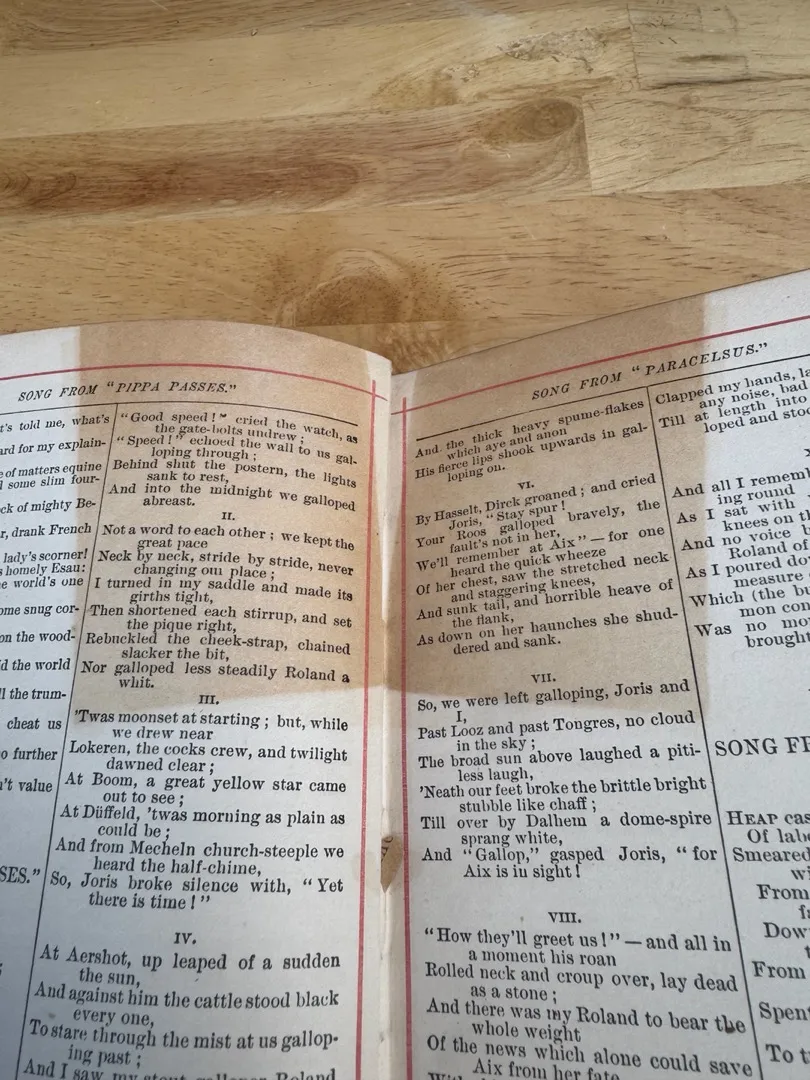 SONG FROM "PIPPA PASSES."
t's told me, what's
ard for my explain-
e of matters equine
some slim four-
ck of mighty Be-
r, drank French
lady's scorner!
s homely Esau:
e world's one
ome snug cor-
on the wood-
d the world
ll the trum-
cheat us
o further
n't value
SES."
"Good speed!" cried the watch, as
the gate-bolts undrew;
"Speed!" echoed the wall to us gal-
loping through;
Behind shut the postern, the lights
sank to rest,
And into the midnight we galloped
abreast.
II.
Not a word to each other; we kept the
great pace
Neck by neck, stride by stride, never
changing our place;
I turned in my saddle and made its
girths tight,
Then shortened each stirrup, and set
the pique right,
Rebuckled the cheek-strap, chained
slacker the bit,
Nor galloped less steadily Roland a
whit.
III.
'Twas moonset at starting; but, while
we drew near
Lokeren, the cocks crew, and twilight
dawned clear;
At Boom, a great yellow star came
out to see;
At Düffeld, 'twas morning as plain as
could be;
And from Mecheln church-steeple we
heard the half-chime,
So, Joris broke silence with, "Yet
there is time!"
IV.
At Aershot, up leaped of a sudden
the sun,
And against him the cattle stood black
every one,
To stare through the mist at us gallop-
ing past;
And I saw my stout galloper Roland
SONG FROM "PARACELSUS."
And the thick heavy spume-flakes
which aye and anon
His fierce lips shook upwards in gal-
loping on.
VI.
By Hasselt, Dirck groaned; and cried
Joris, "Stay spur!
Your Roos galloped bravely, the
fault's not in her,
We'll remember at Aix"—for one
heard the quick wheeze
Of her chest, saw the stretched neck
and staggering knees,
And sunk tail, and horrible heave of
the flank,
As down on her haunches she shud-
dered and sank.
VII.
So, we were left galloping, Joris and
I,
Past Looz and past Tongres, no cloud
in the sky;
The broad sun above laughed a piti-
less laugh,
'Neath our feet broke the brittle bright
stubble like chaff;
Till over by Dalhem a dome-spire
sprang white,
And "Gallop," gasped Joris, "for
Aix is in sight!
VIII.
"How they'll greet us!"—and all in
a moment his roan
Rolled neck and croup over, lay dead
as a stone;
And there was my Roland to bear the
whole weight
Of the news which alone could save
Aix from her fate,
Clapped my hands, la
any noise, bad
Till at length into
loped and stoo
And all I rememb
ing round
As I sat with
knees on th
And no voice b
Roland of
As I poured do
measure
Which (the bu
mon con
Was no mo
brought
SONG FR
HEAP cas
Of labd
Smeared
wi
From
fa
Dow
From
Spent
To t